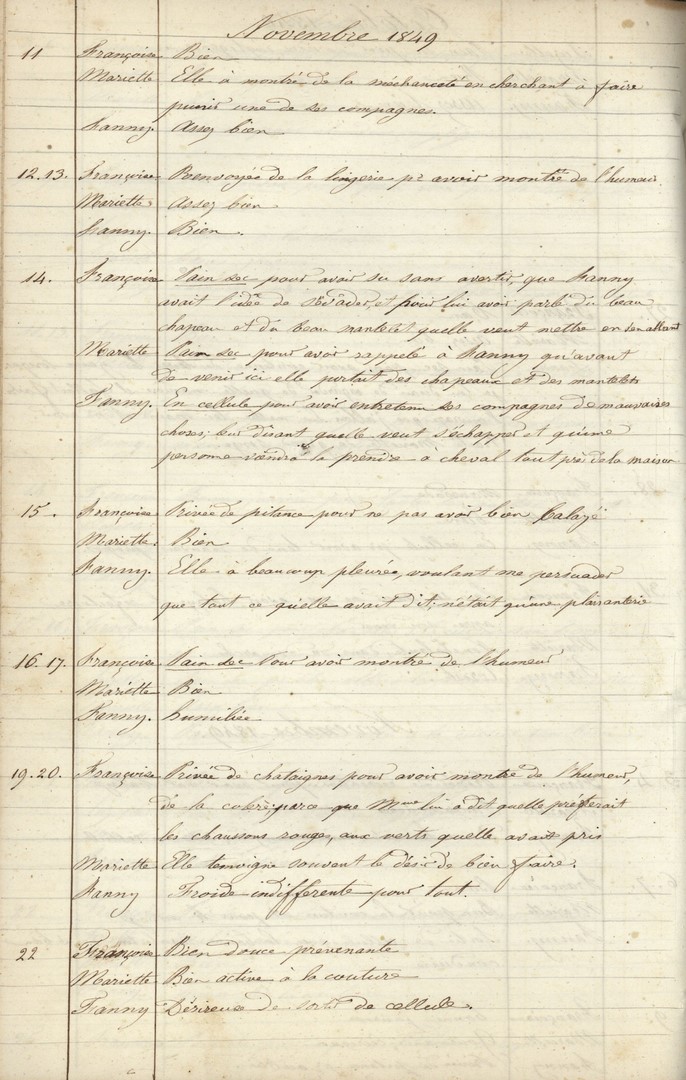 Novembre 1849
11 Françoise Bien
Mariette Elle à montré de la méchanceté en cherchant à faire
punir une de ses compagnes.
Fanny. Assez bien
12.13. Françoise Renvoyée de la lingerie pr avoir montré de l'humeur
Mariette Assez bien
Fanny. Bien.
14. Françoise Pain sec pour avoir su sans avertir, que Fanny
avait l'idée de s'évader, et pour lui avoir parlé du beau
chapeau et du beau mantelet quelle veut mettre en s'en allant
Mariette Pain sec pour avoir rappelé à Fanny qu'avant
de venir ici elle portait des chapeaux et des mantelets
Fanny. En cellule pour avoir entretenu ses compagnes de mauvaises
choses; leur disant quelle veut s'échapper et qu'une
personne viendra la prendre à cheval tout près de la maison
15. Françoise Privée de pitance pour ne pas avoir bien balayé
Mariette. Bien
Fanny. Elle à beaucoup pleurée, voulant me persuader
que tout ce qu'elle avait dit, n'était qu'une plaisanterie
16.17. Françoise Pain sec Pour avoir montré de l'humeur
Mariette Bien
Fanny. humiliée
19.20. Françoise Privée de chataignes pour avoir montré de l'humeur,
de la colère; parce que Mme lui à dit quelle préférait
les chaussons rouges, aux verts quelle avait pris
Mariette Elle temoigne souvent le désir de bien faire.
Fanny Froide indifferente pour tout.
22 Françoise Bien douce prévenante
Mariette Bien active à la couture
Fanny Désireuse de sortir de cellule.